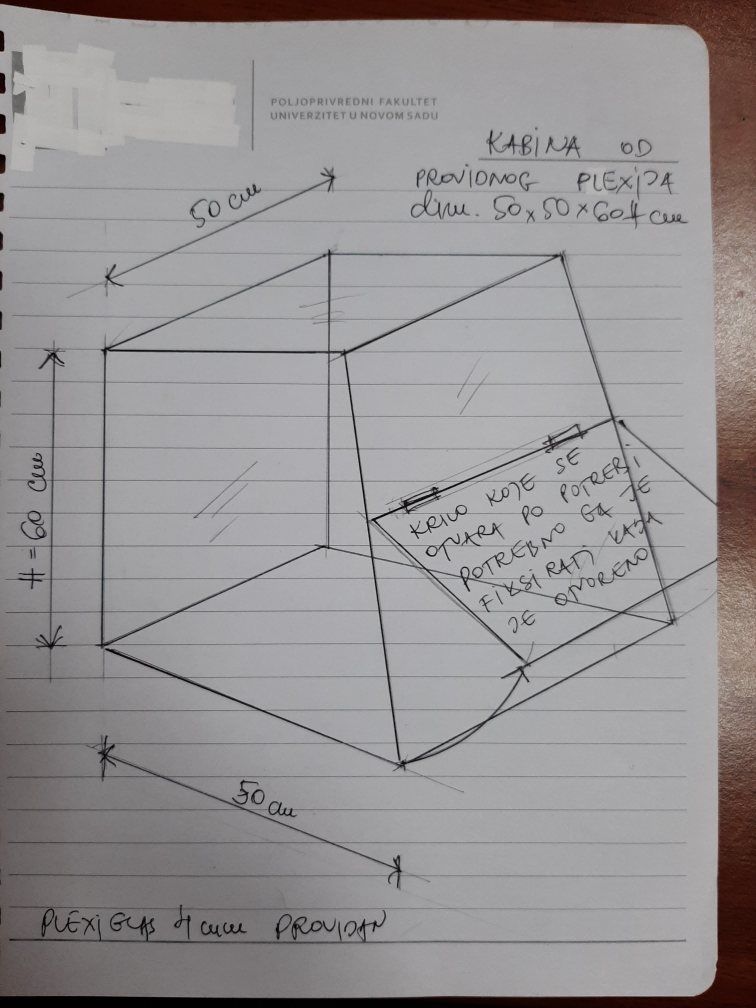 POLJOPRIVREDNI FAKULTET
UNIVERZITET U NOVOM SADU
KABINA OD
PROVIDNOG PLEXIJA
dim. 50x50x60H cm
50 cm
H = 60 cm
KRILO KOJE SE
OTVARA PO POTREBI
POTREBNO GA JE
FIKSIRATI KADA
JE OTVORENO
50 cm
PLEXIGLAS 4 mm PROVIDAN